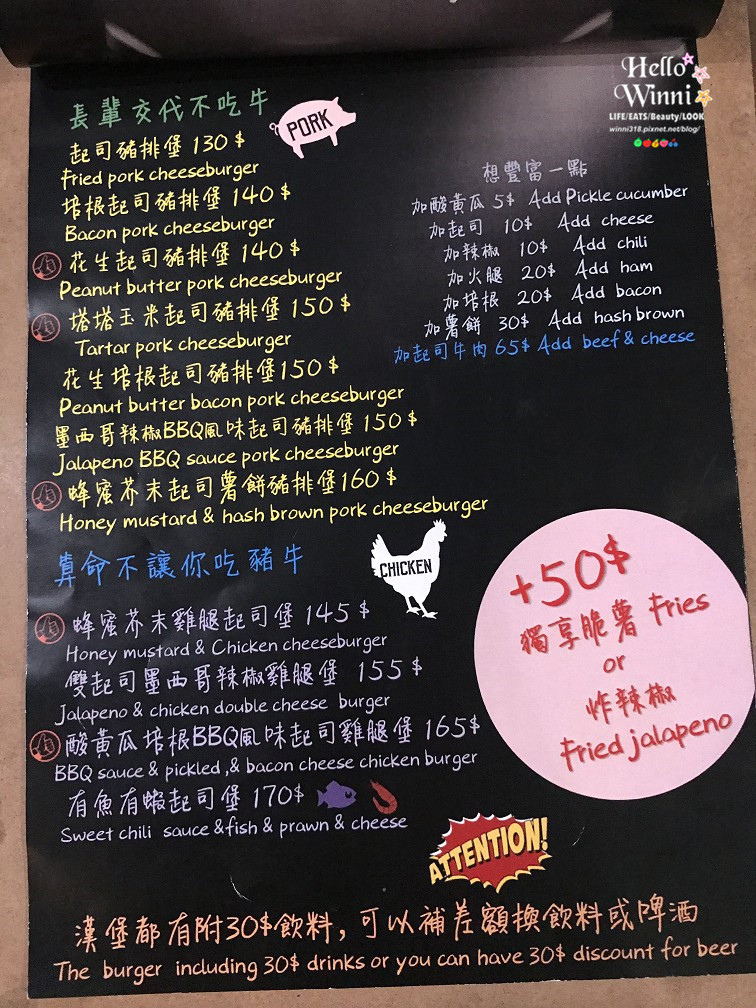 Hello
Winni
LIFE/EATS/Beauty/LOOK
winni318.pixnet.net/blog/
長輩交代不吃牛
PORK
起司豬排堡 130 $
Fried pork cheeseburger
培根起司豬排堡 140 $
Bacon pork cheeseburger
花生起司豬排堡 140 $
Peanut butter pork cheeseburger
塔塔玉米起司豬排堡 150 $
Tartar pork cheeseburger
花生培根起司豬排堡 150 $
Peanut butter bacon pork cheeseburger
墨西哥辣椒BBQ風味起司豬排堡 150 $
Jalapeno BBQ sauce pork cheeseburger
蜂蜜芥末起司薯餅豬排堡 160 $
Honey mustard & hash brown pork cheeseburger
想豐富一點
加酸黃瓜 5$ Add Pickle cucumber
加起司 10$ Add cheese
加辣椒 10$ Add chili
加火腿 20$ Add ham
加培根 20$ Add bacon
加薯餅 30$ Add hash brown
加起司牛肉 65$ Add beef & cheese
算命不讓你吃豬牛
CHICKEN
蜂蜜芥末雞腿起司堡 145 $
Honey mustard & Chicken cheeseburger
雙起司墨西哥辣椒雞腿堡 155 $
Jalapeno & chicken double cheese burger
酸黃瓜培根BBQ風味起司雞腿堡 165$
BBQ sauce & pickled ,& bacon cheese chicken burger
有魚有蝦起司堡 170$
Sweet chili sauce &fish & prawn & cheese
+50$
獨享脆薯 Fries
or
炸辣椒
Fried jalapeno
ATTENTION!
漢堡都有附30$飲料, 可以補差額換飲料或啤酒
The burger including 30$ drinks or you can have 30$ discount for beer